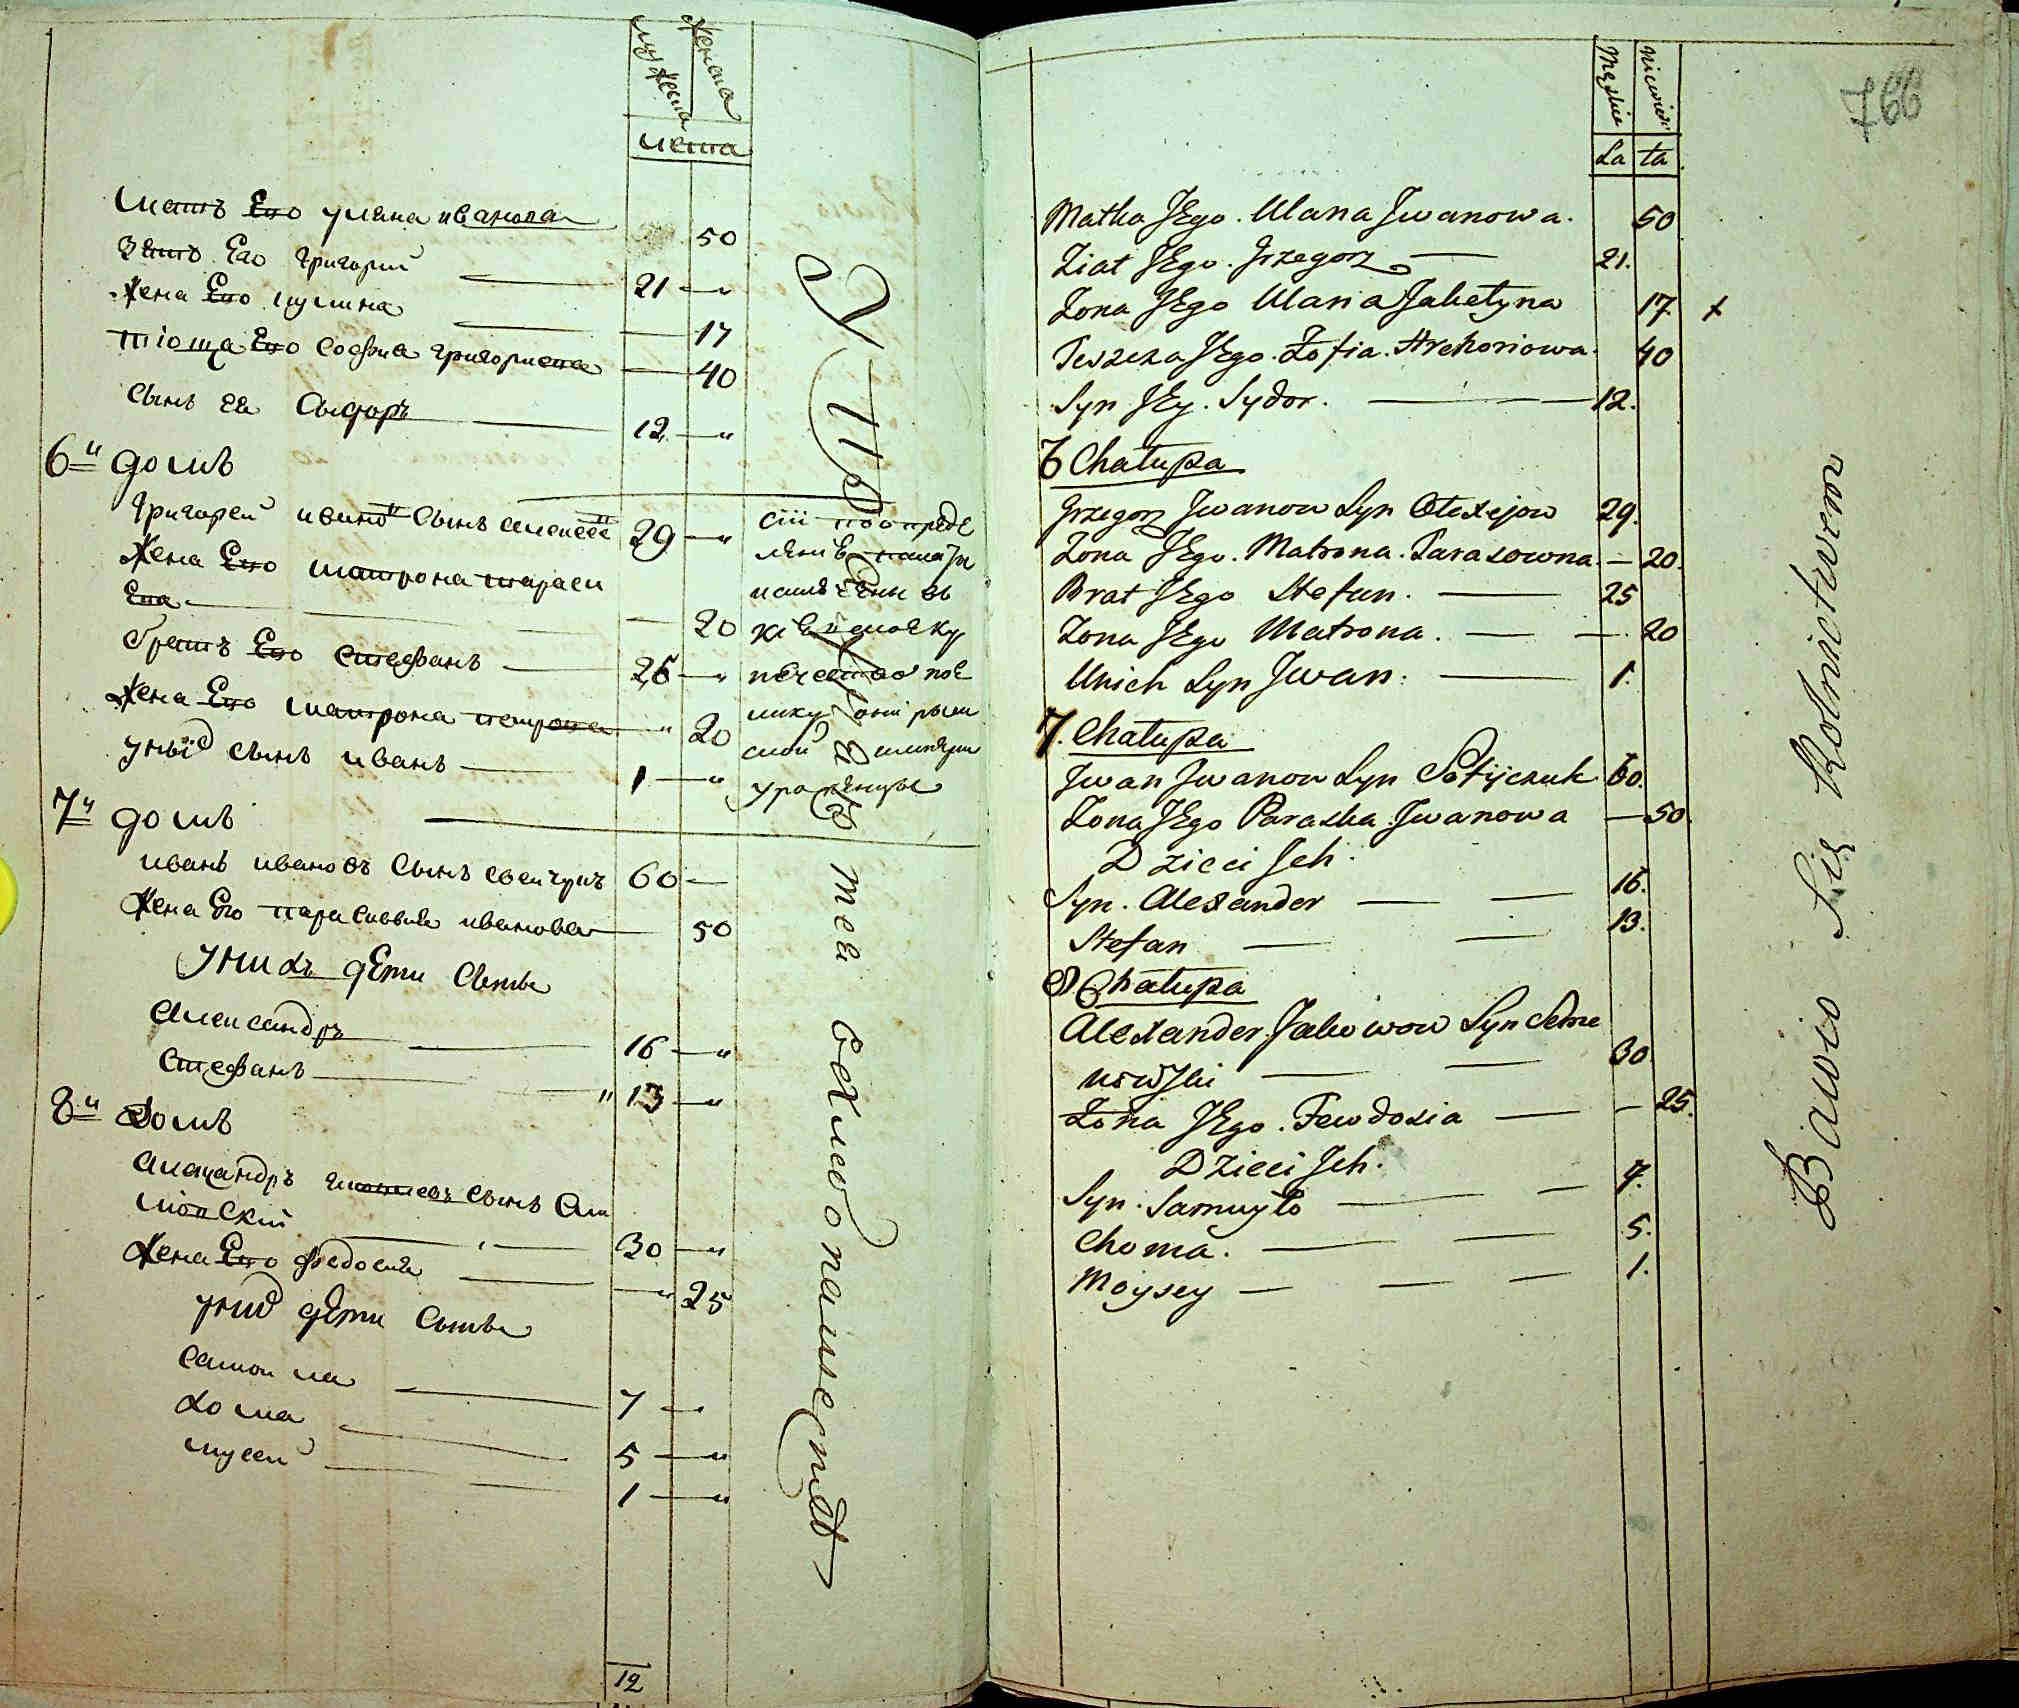 мужеска
женска
лета
мать Его уляна иванова 50
Зять Его григорий 21
жена Его 17
тіоща Его Софиа григориева 40
Сынъ Ея Сыдоръ 12
6й домъ
Григорей ивановъ Сынъ алексеевъ 29
жена Его матрона тараси
Ева 20
братъ Его стефанъ 25
жена Его матрона петрова 20
у ныхъ сынъ иванъ 1
сіи по опреде
ленію
уроженцы
7й домъ
иванъ ивановъ Сынъ 60
жена Его парасковия иванова 50
у нихъ дети Сыны
Александръ 16
Стефанъ 13
8й Домъ
Александръ Сынъ Сем
новскій 30
жена Его федосия 25
у нихъ дети Сыны
Самойла 7
хома 5
мусей 1
12
упражняется в хлебопашестве
766
Męskie
Niewieś:
La ta
Matka JEgo. Ulana Jwanowa. 50
Ziat JEgo. Grzegorz 21.
Zona JEgo Ulana Jaketyna 17. x
Teszcza JEgo. Zofia. Hrehoriowa. 40
Syn JEy. Sydor. 12.
6 Chałupa
Grzegorz Jwanow Syn Olexejow 29.
Zona JEgo. Matrona. Tarasowna. 20.
Brat JEgo Stefan. 25
Zona JEgo Matrona. 20
Unich Syn Jwan. 1.
7. Chałupa
Jwan Jwanow Syn 60.
Zona JEgo Paraska Jwanowa 50
Dzieci Jch.
Syn. Alexander 16.
Stefan 13.
8 Chałupa
Alexander Jakowow Syn Seme
nowski 30
Zona JEgo. Fewdosia 25.
Dzieci Jch.
Syn. Samuyło 7.
Choma. 5.
Moysey 1.
Bawio Się Rolnictwem